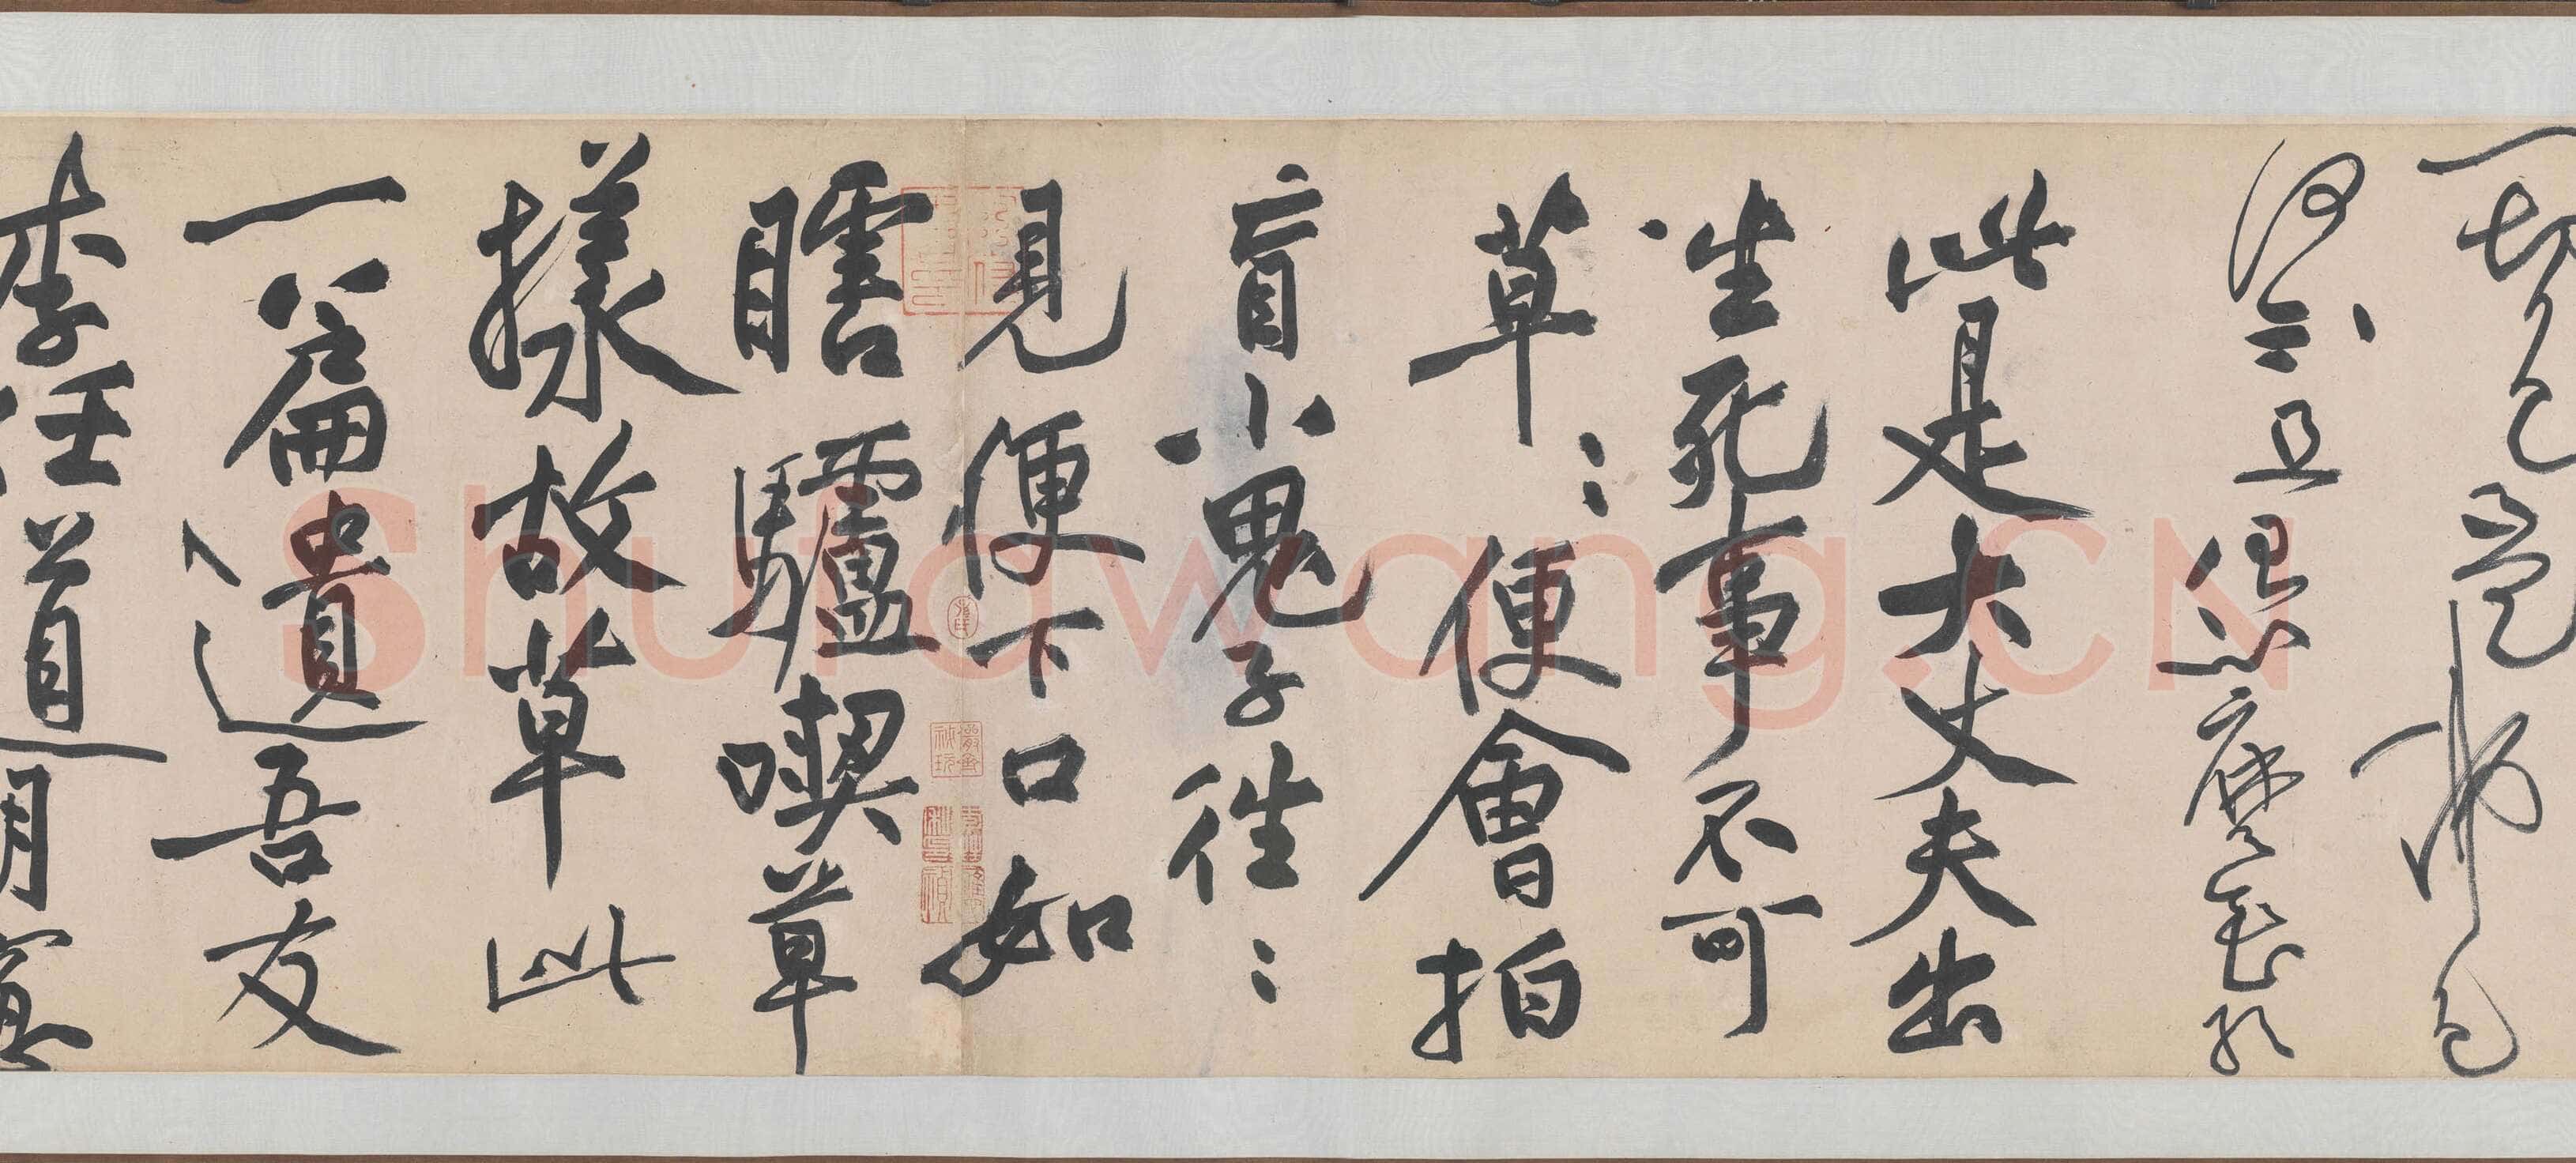 一切
恁麼
此是大丈夫出
生死事不可
草〻便會拍
盲小鬼子往〻
見便下口如
瞎驢喫草
樣故草此
一篇遺吾友
李任道明窓
Shufawang.CN